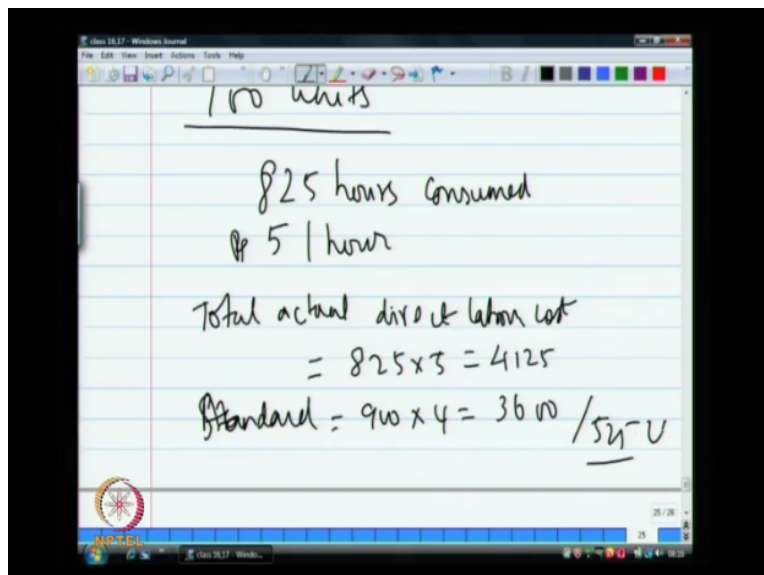 class 16,17 - Windows Journal
File Edit View Insert Actions Tools Help
B I
100 units
825 hours consumed
Rs 5 / hour
Total actual direct labour cost
= 825 x 5 = 4125
Standard = 900 x 4 = 3600 / 525 U
25 / 26
25
NPTEL
class 16,17 - Windo...